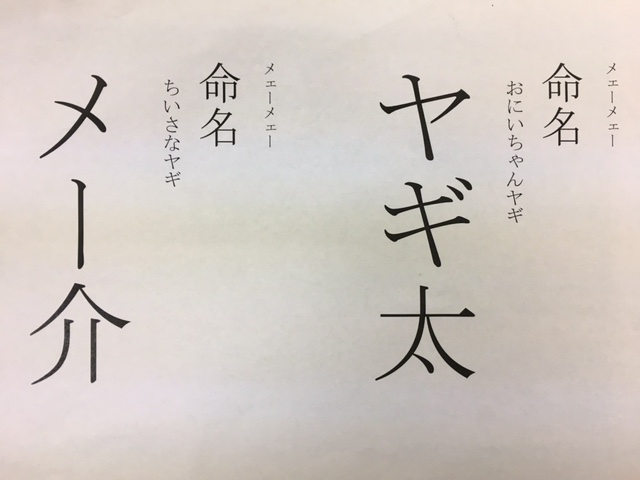 メェーメェー
命名
おにいちゃんヤギ
ヤギ太
メェーメェー
命名
ちいさなヤギ
メー介